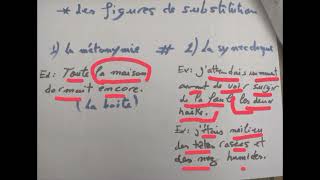 * des figures de substitution
1) la métonymie # 2) la synecdoque
Ex: Toute la maison
dormait encore.
(la boîte)
Ex: j'attendais
avant de voir surgir
de la les deux
Ex: j'étais milieu
des têtes rasées et
des nez humides.